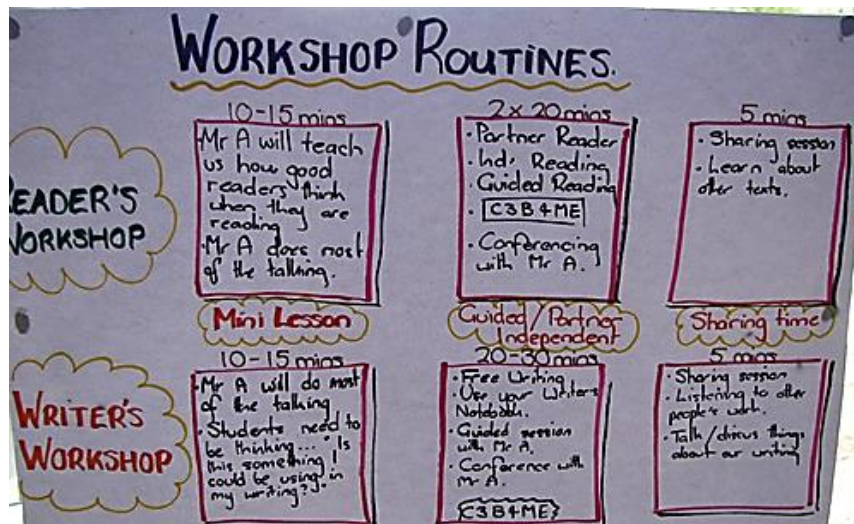 WORKSHOP ROUTINES.
10-15 mins
2 x 20 mins
5 mins
READER'S
WORKSHOP
• Mr A will teach
us how good
readers think
when they are
reading
• Mr A does most
of the talking.
• Partner Reader
• Ind' Reading
• Guided Reading
• C3B4ME
• Conferencing
with Mr A.
• Sharing session
• Learn about
other texts.
Mini Lesson
Guided/Partner
Independent
Sharing time
10-15 mins
20-30 mins
5 mins
WRITER'S
WORKSHOP
• Mr A will do most
of the talking
• Students need to
be thinking... "Is
this something I
could be using in
my writing?"
• Free Writing
• Use your Writers
Notebook.
• Guided session
with Mr A.
• Conference with
Mr A.
C3B4ME
• Sharing session
• Listening to other
people's work.
• Talk/discus things
about our writing